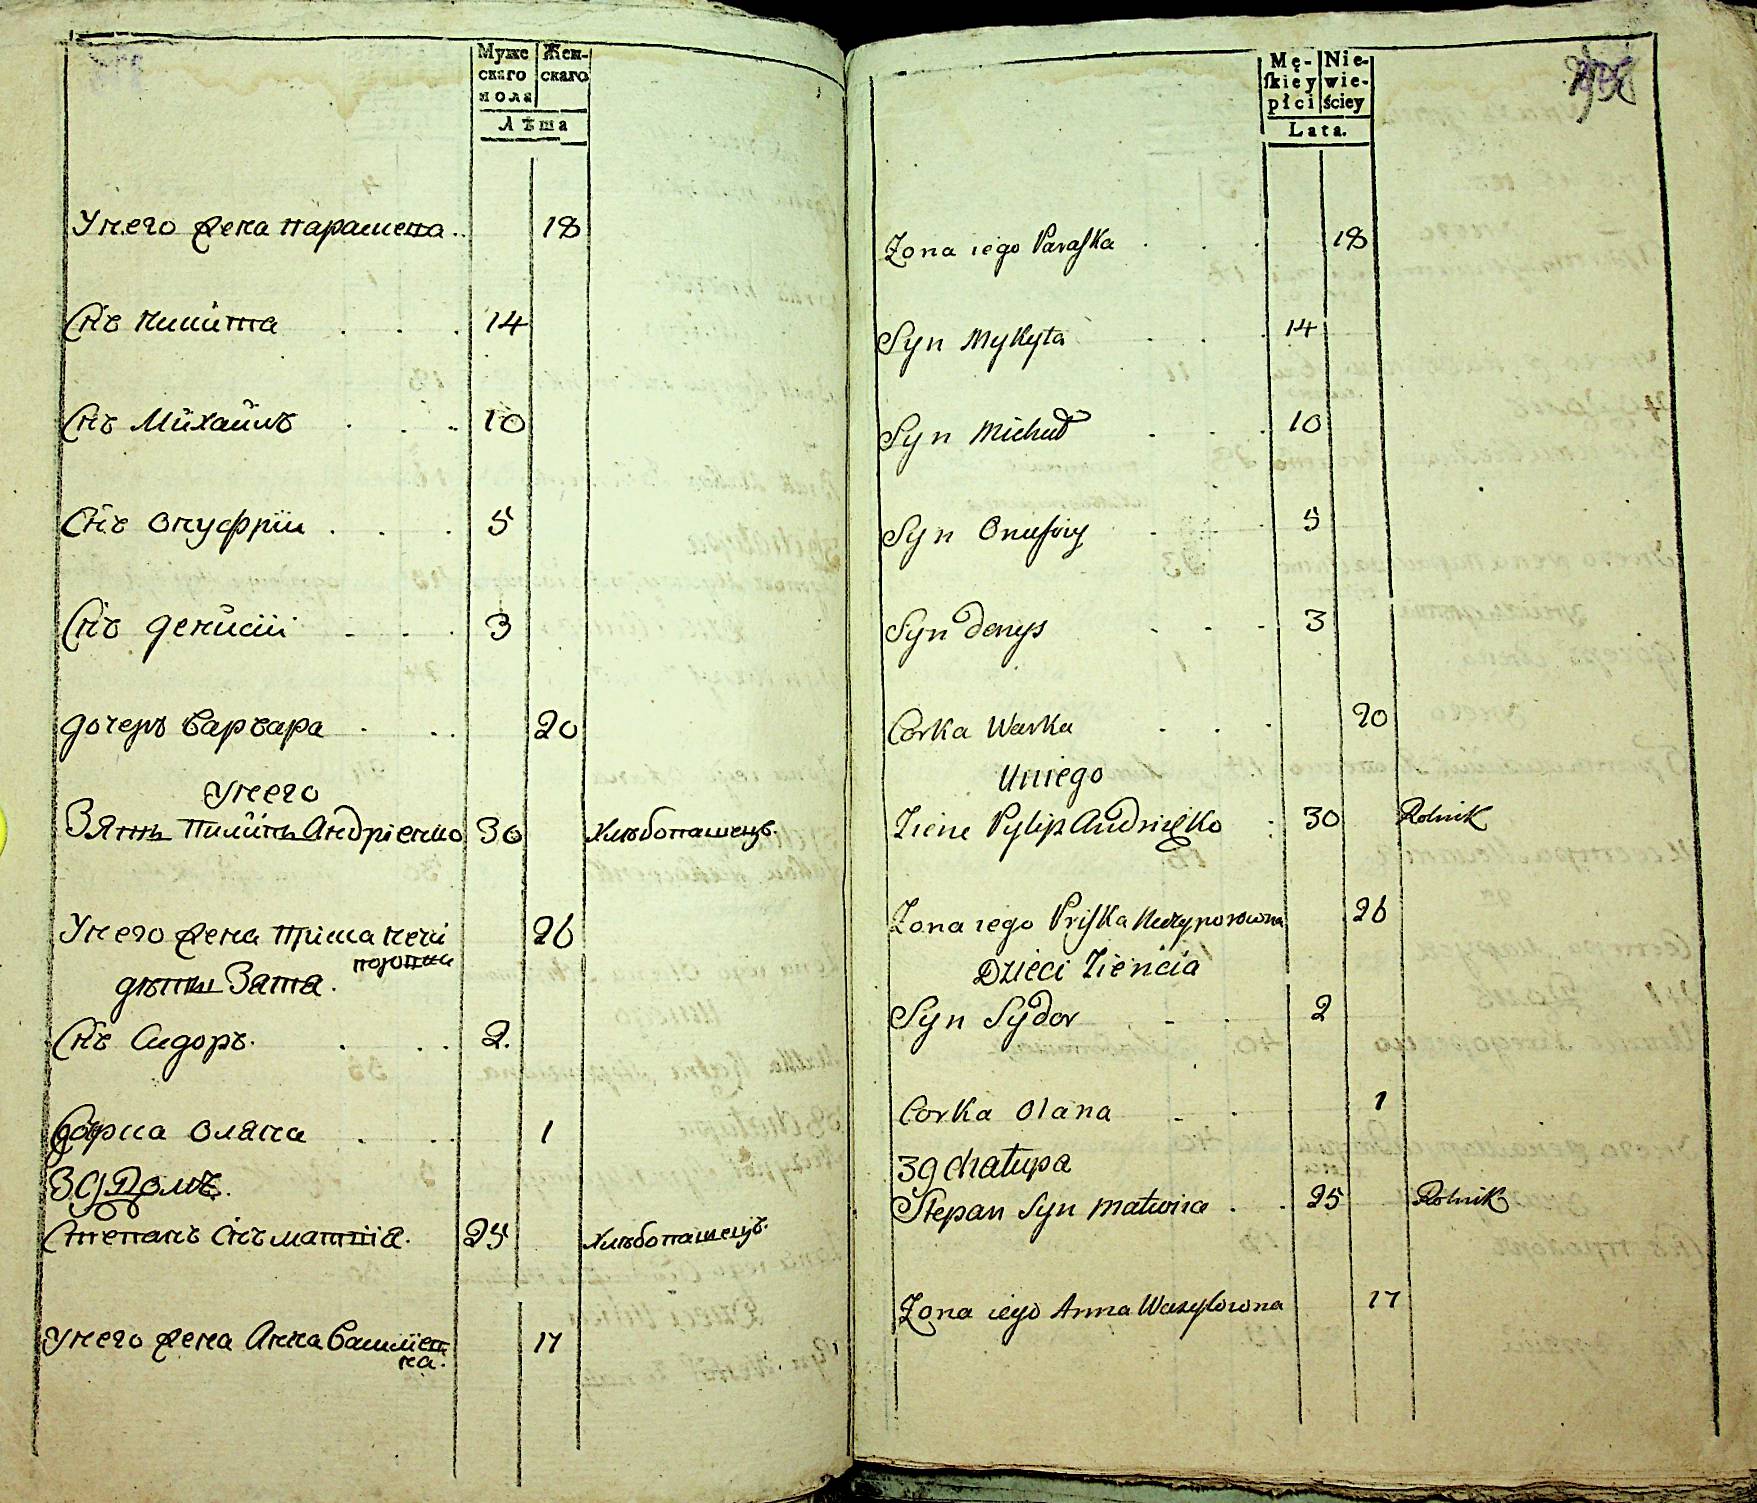 Муже Жен-
скаго скаго
пола
Лѣта
У него жена парашека .. 18
Снъ никита . . . 14
Снъ Михаилъ . . .. 10
Снъ Онуфрiи . . . 5
Снъ Денисiи . . . 3
дочеръ Варвара . . . 20
У него
Зять Пилипъ Андрiенко 30 Хлѣбопашецъ.
У него жена Приска
дѣти Зятя.
Снъ Сидоръ . . . 2.
дочка Оляна . . . 1
39 Домъ.
Степанъ Снъ матвiiв. 25 Хлѣбопашецъ.
У него жена Анна Василiев
на. 17
Mę- Nie-
ſkiey wie-
płci ściey
Lata.
Zona iego Paraſka . . . 18
Syn Mykyta . . . 14
Syn Michał . . . 10
Syn Onufriy . . . 5
Syn Denys . . . 3
Corka Warka . . . 20
Uniego
Ziene Pylip Andrieko : 30 Rolnik
Zona iego Priſka Niczyporowna 26
Dzieci Ziencia
Syn Sydor . . . 2
Corka Olana . . 1
39 Chatupa
Stepan Syn Matwiia . . 25 Rolnik
Zona iego Anna Wasylowna 17